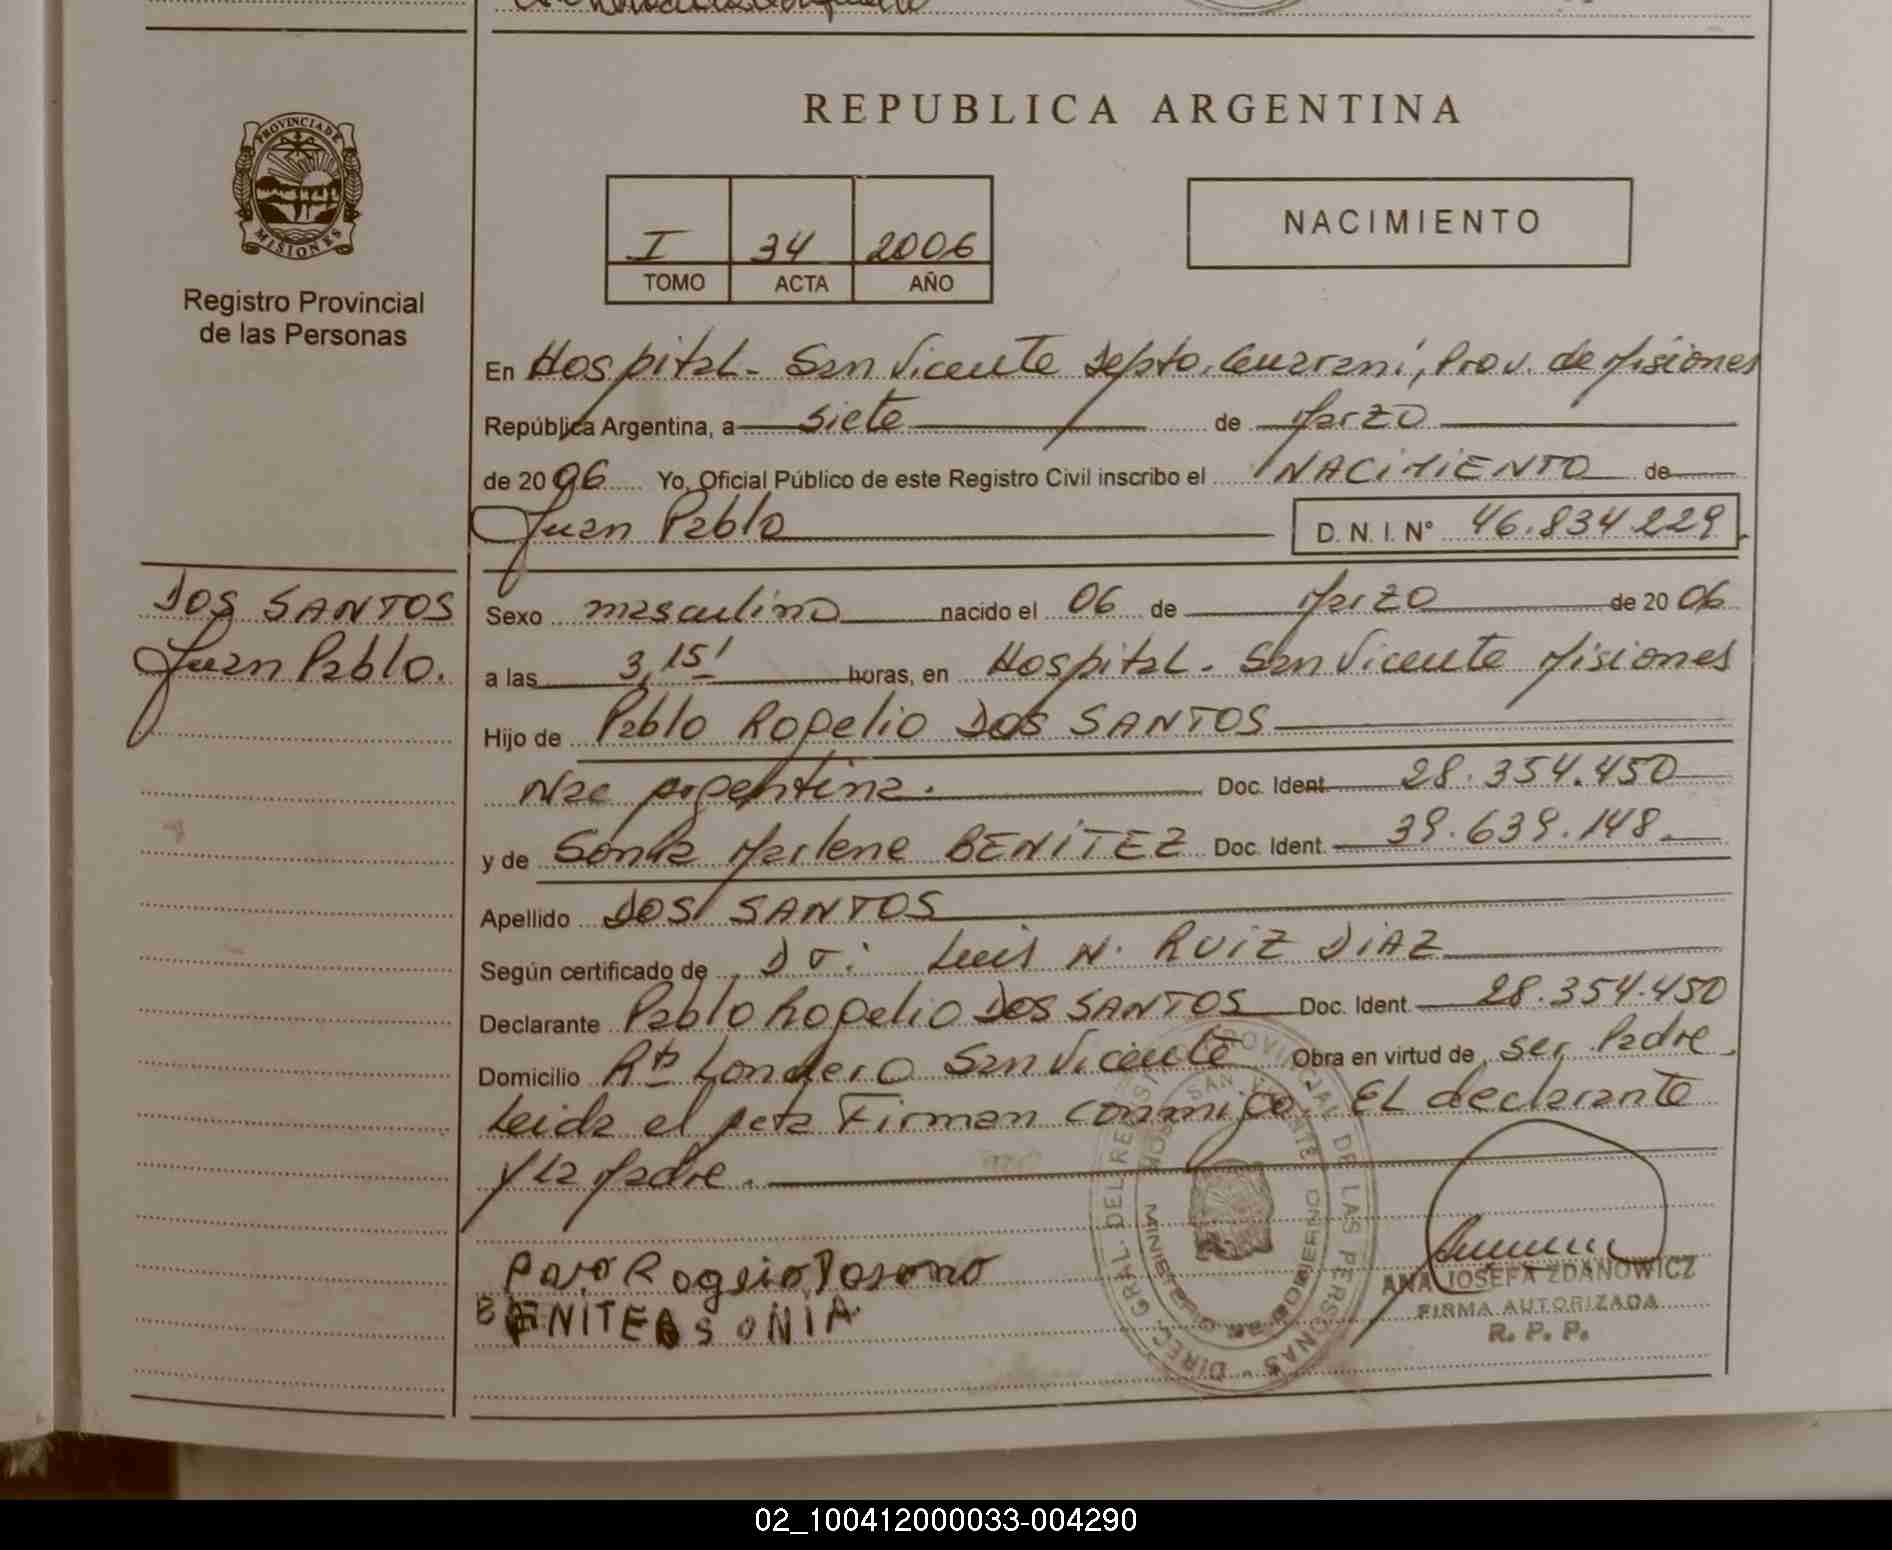 REPUBLICA ARGENTINA
PROVINCIA DE
MISIONES
Registro Provincial
de las Personas
I 34 2006
TOMO ACTA AÑO
NACIMIENTO
En Hospital - San Vicente Depto. Guarani, Prov. de Misiones
República Argentina, a siete de Marzo
de 2006 Yo, Oficial Público de este Registro Civil inscribo el NACIMIENTO de
Juan Pablo D. N. I. N° 46.834.229
DOS SANTOS
Juan Pablo.
Sexo masculino nacido el 06 de Marzo de 2006
a las 3,15' horas, en Hospital - San Vicente Misiones
Hijo de Pablo Rogelio DOS SANTOS
Nac argentina. Doc. Ident. 28.354.450
y de Sonia Marlene BENITEZ Doc. Ident. 39.639.148.
Apellido DOS SANTOS
Según certificado de Dr: Luis N. RUIZ DIAZ
Declarante Pablo Rogelio DOS SANTOS Doc. Ident. 28.354.450
Domicilio Rto Londero San Vicente Obra en virtud de ser Padre.
Leida el acta Firman conmigo. EL declarante
y La Madre.
BENITES SONIA
ANA JOSEFA ZDANOWICZ
FIRMA AUTORIZADA
R. P. P.
DIREC. GRAL. DEL REGISTRO PROVINCIAL DE LAS PERSONAS
HOSP. SAN VICENTE
MINISTERIO DE GOBIERNO
02_100412000033-004290